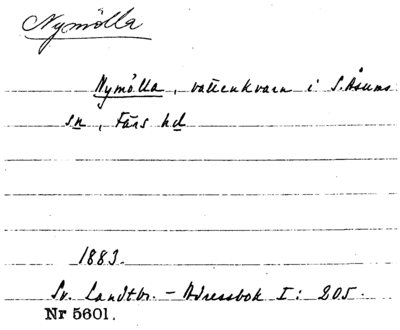 Nymölla
Nymölla, vattenkvarn i S. Åsums
sn, Färs hd
1883.
Sv. Landtbr. - Adressbok I: 205.
Nr 5601.